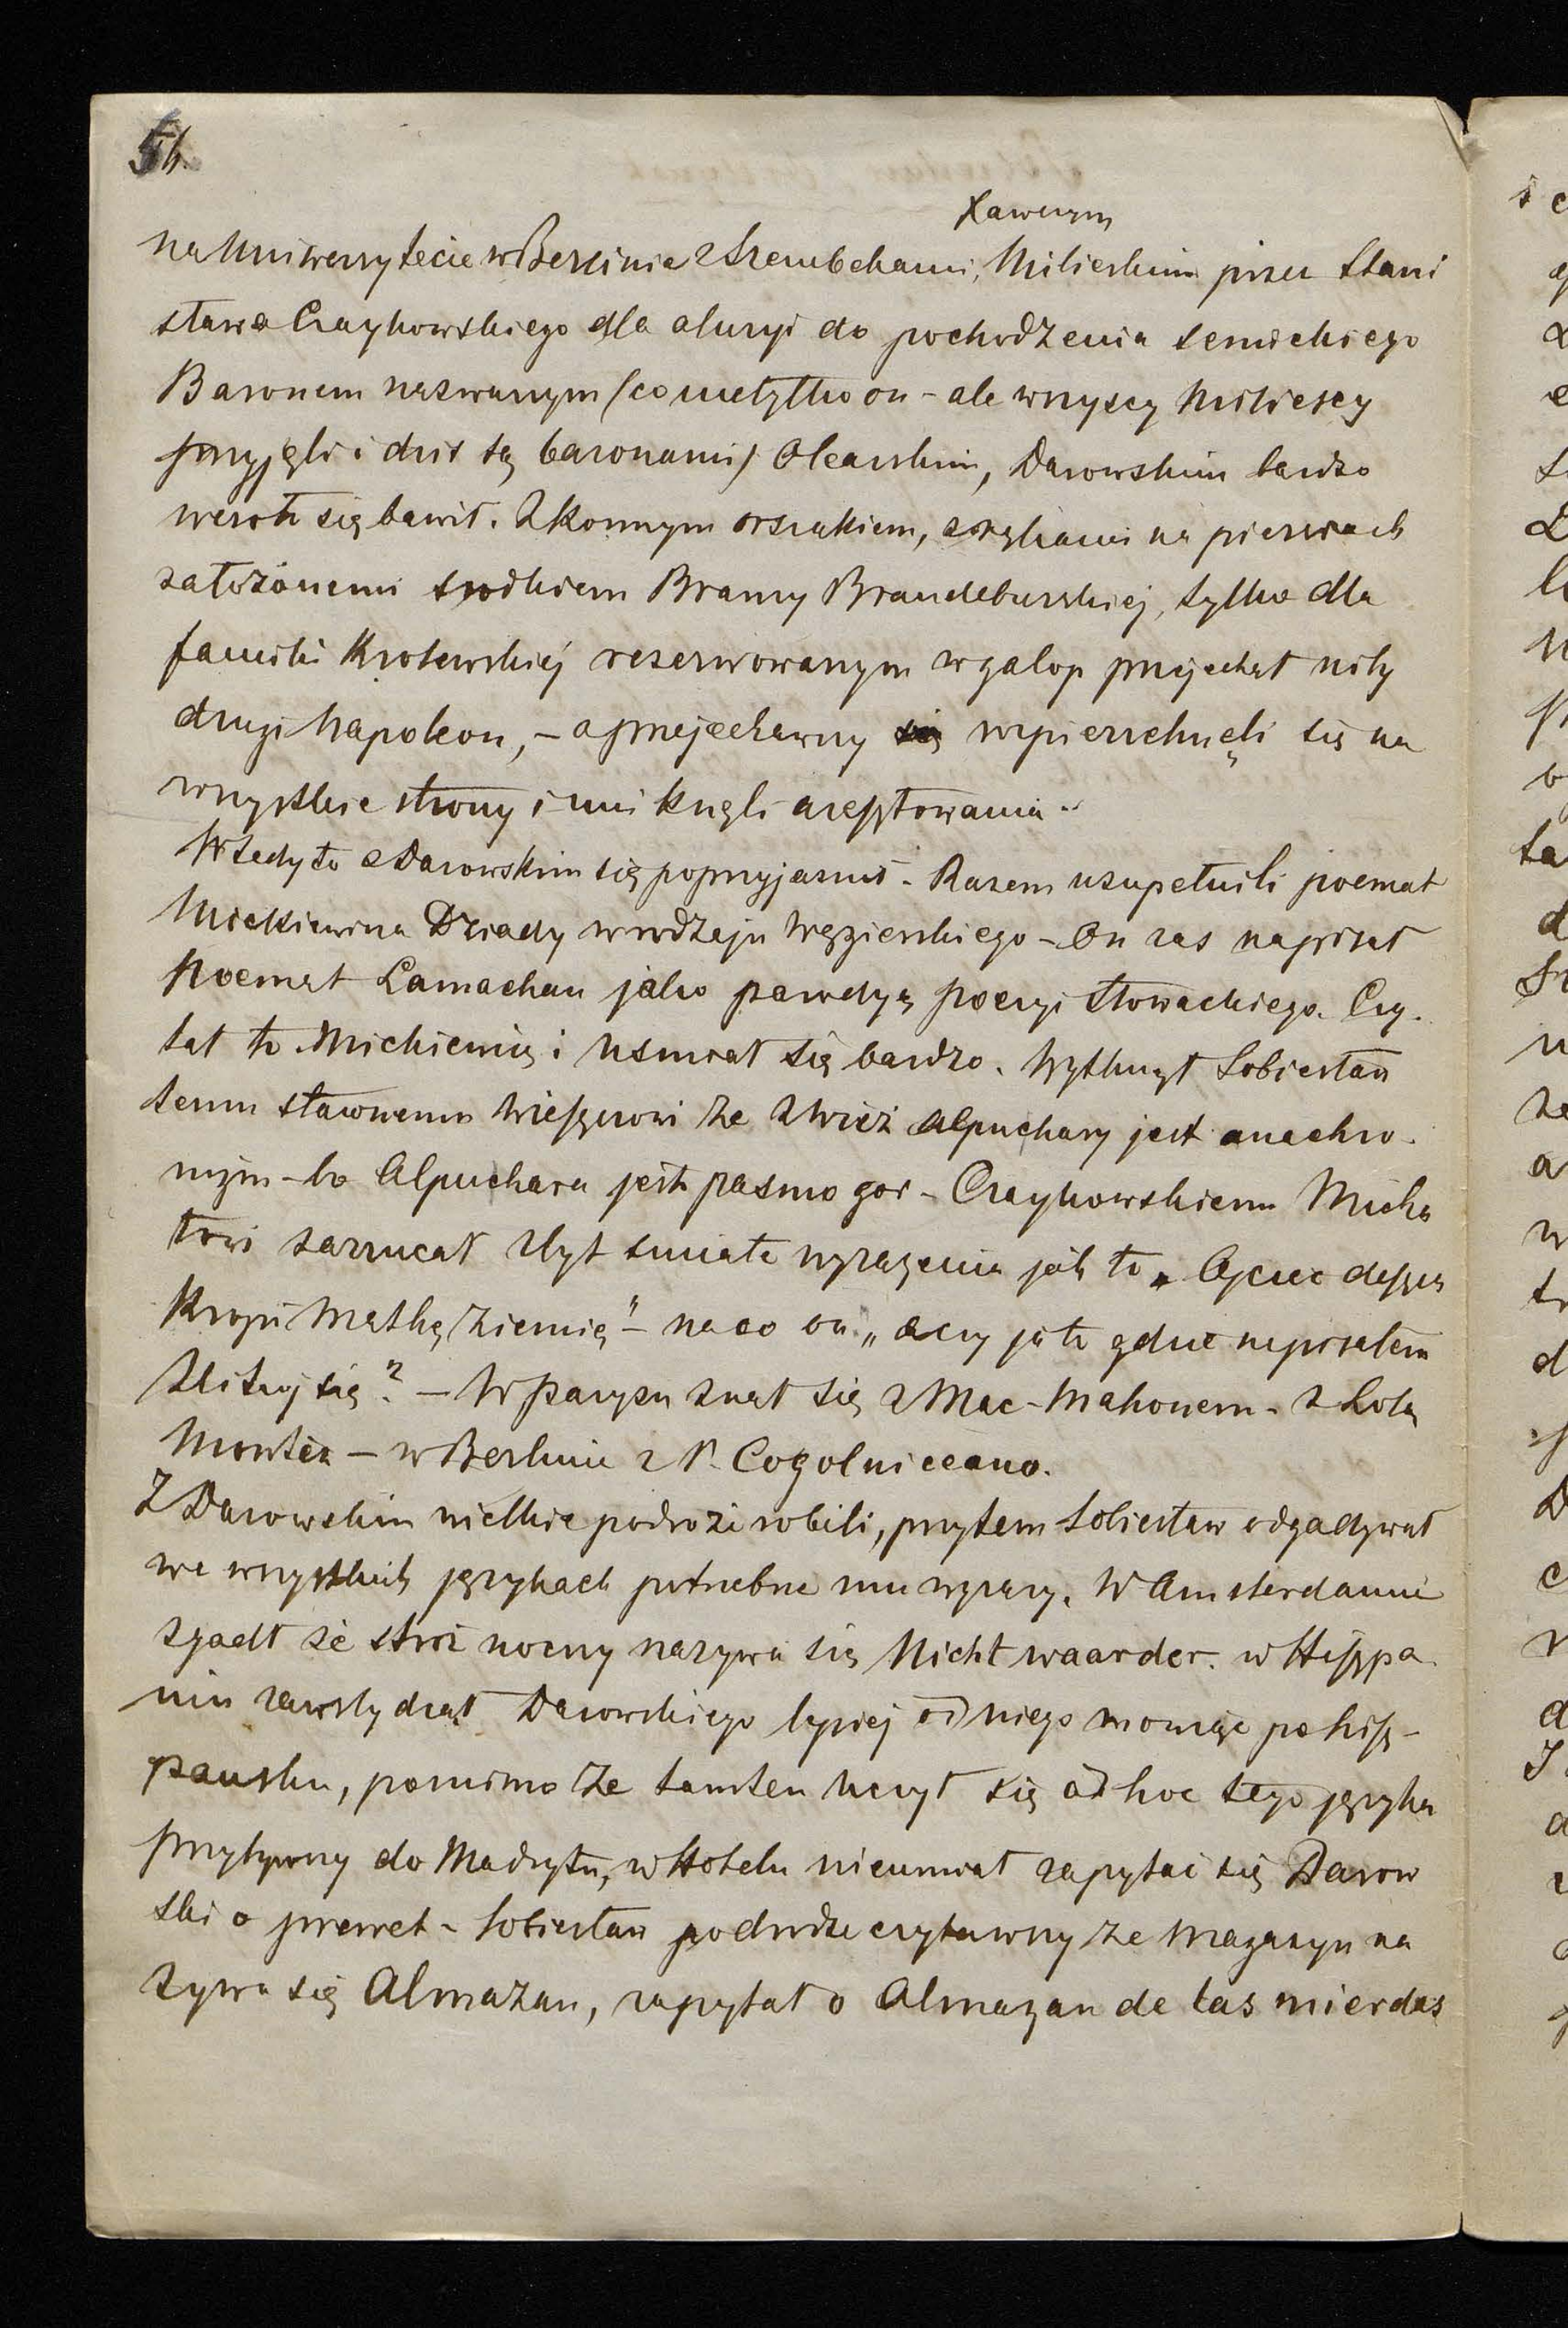 54.
Xawerym
na Uniwersytecie w Berlinie z Szembekami, Milieskim przez Stani
sława Czaykowskiego dla aluzyi do pochodzenia semickiego
Baronem nazwanym (co nietylko on – ale wszyscy Miliescy
przyjęli i dziś są baronami) Olearskim, Darowskim bardzo
wesoło się bawił. Z konnym orszakiem, z rękami na piersiach
założonemi środkiem Bramy Brandeburskiej, tylko dla
familii Krolewskiej reserwowanym w galop przejechał niby
drugi Napoleon, – a przejechawszy się rozpierzchnęli się na
wszystkie strony i uniknęli aresztowania.
Wtedy to z Darowskim się poprzyjaźnił – Razem uzupełnili poemat
Mickiewicza Dziady w rodzaju Węgierskiego – On zas napisał
Poemat Lamachan jako parodyą poezyi Słowackiego. Czy-
tał to Mickiewicz i uśmiał się bardzo. Wytknął Sobiesław
temu sławnemu Wieszczowi że z wież Alpuchary jest anachro-
nizm – bo Alpuchara jest pasmo gor – Czaykowskiemu Micha
łowi zarzucał zbyt smiałe wyrażenia jak to „Ojciec deszcz
kropi Matkę Ziemię" – na co on „a czy ja to gdzie napisałem
zlituj się?" – W Paryżu znał się z Mac-Mahonem – z Lolą
Montez – w Berlinie z P. Cogolniceano.
Z Darowskim wielkie podroże robili, przytem Sobiesław odgadywał
we wszystkich językach potrzebne mu wyrazy. W Amsterdamie
zgadł że stroż nocny nazywa się Nichtwaarder. w Hiszpa
nii zawstydzał Darowskiego lepiej od niego mowiąc po hisz-
pańsku, pomimo że tamten uczył się ad hoc tego języka
Przybywszy do Madrytu, w Hotelu nieumiał zapytać się Darow
ski o prewet – Sobiesław po drodze czytawszy że magazyn na
zywa się Almazan, zapytał o Almazan de las mierdas